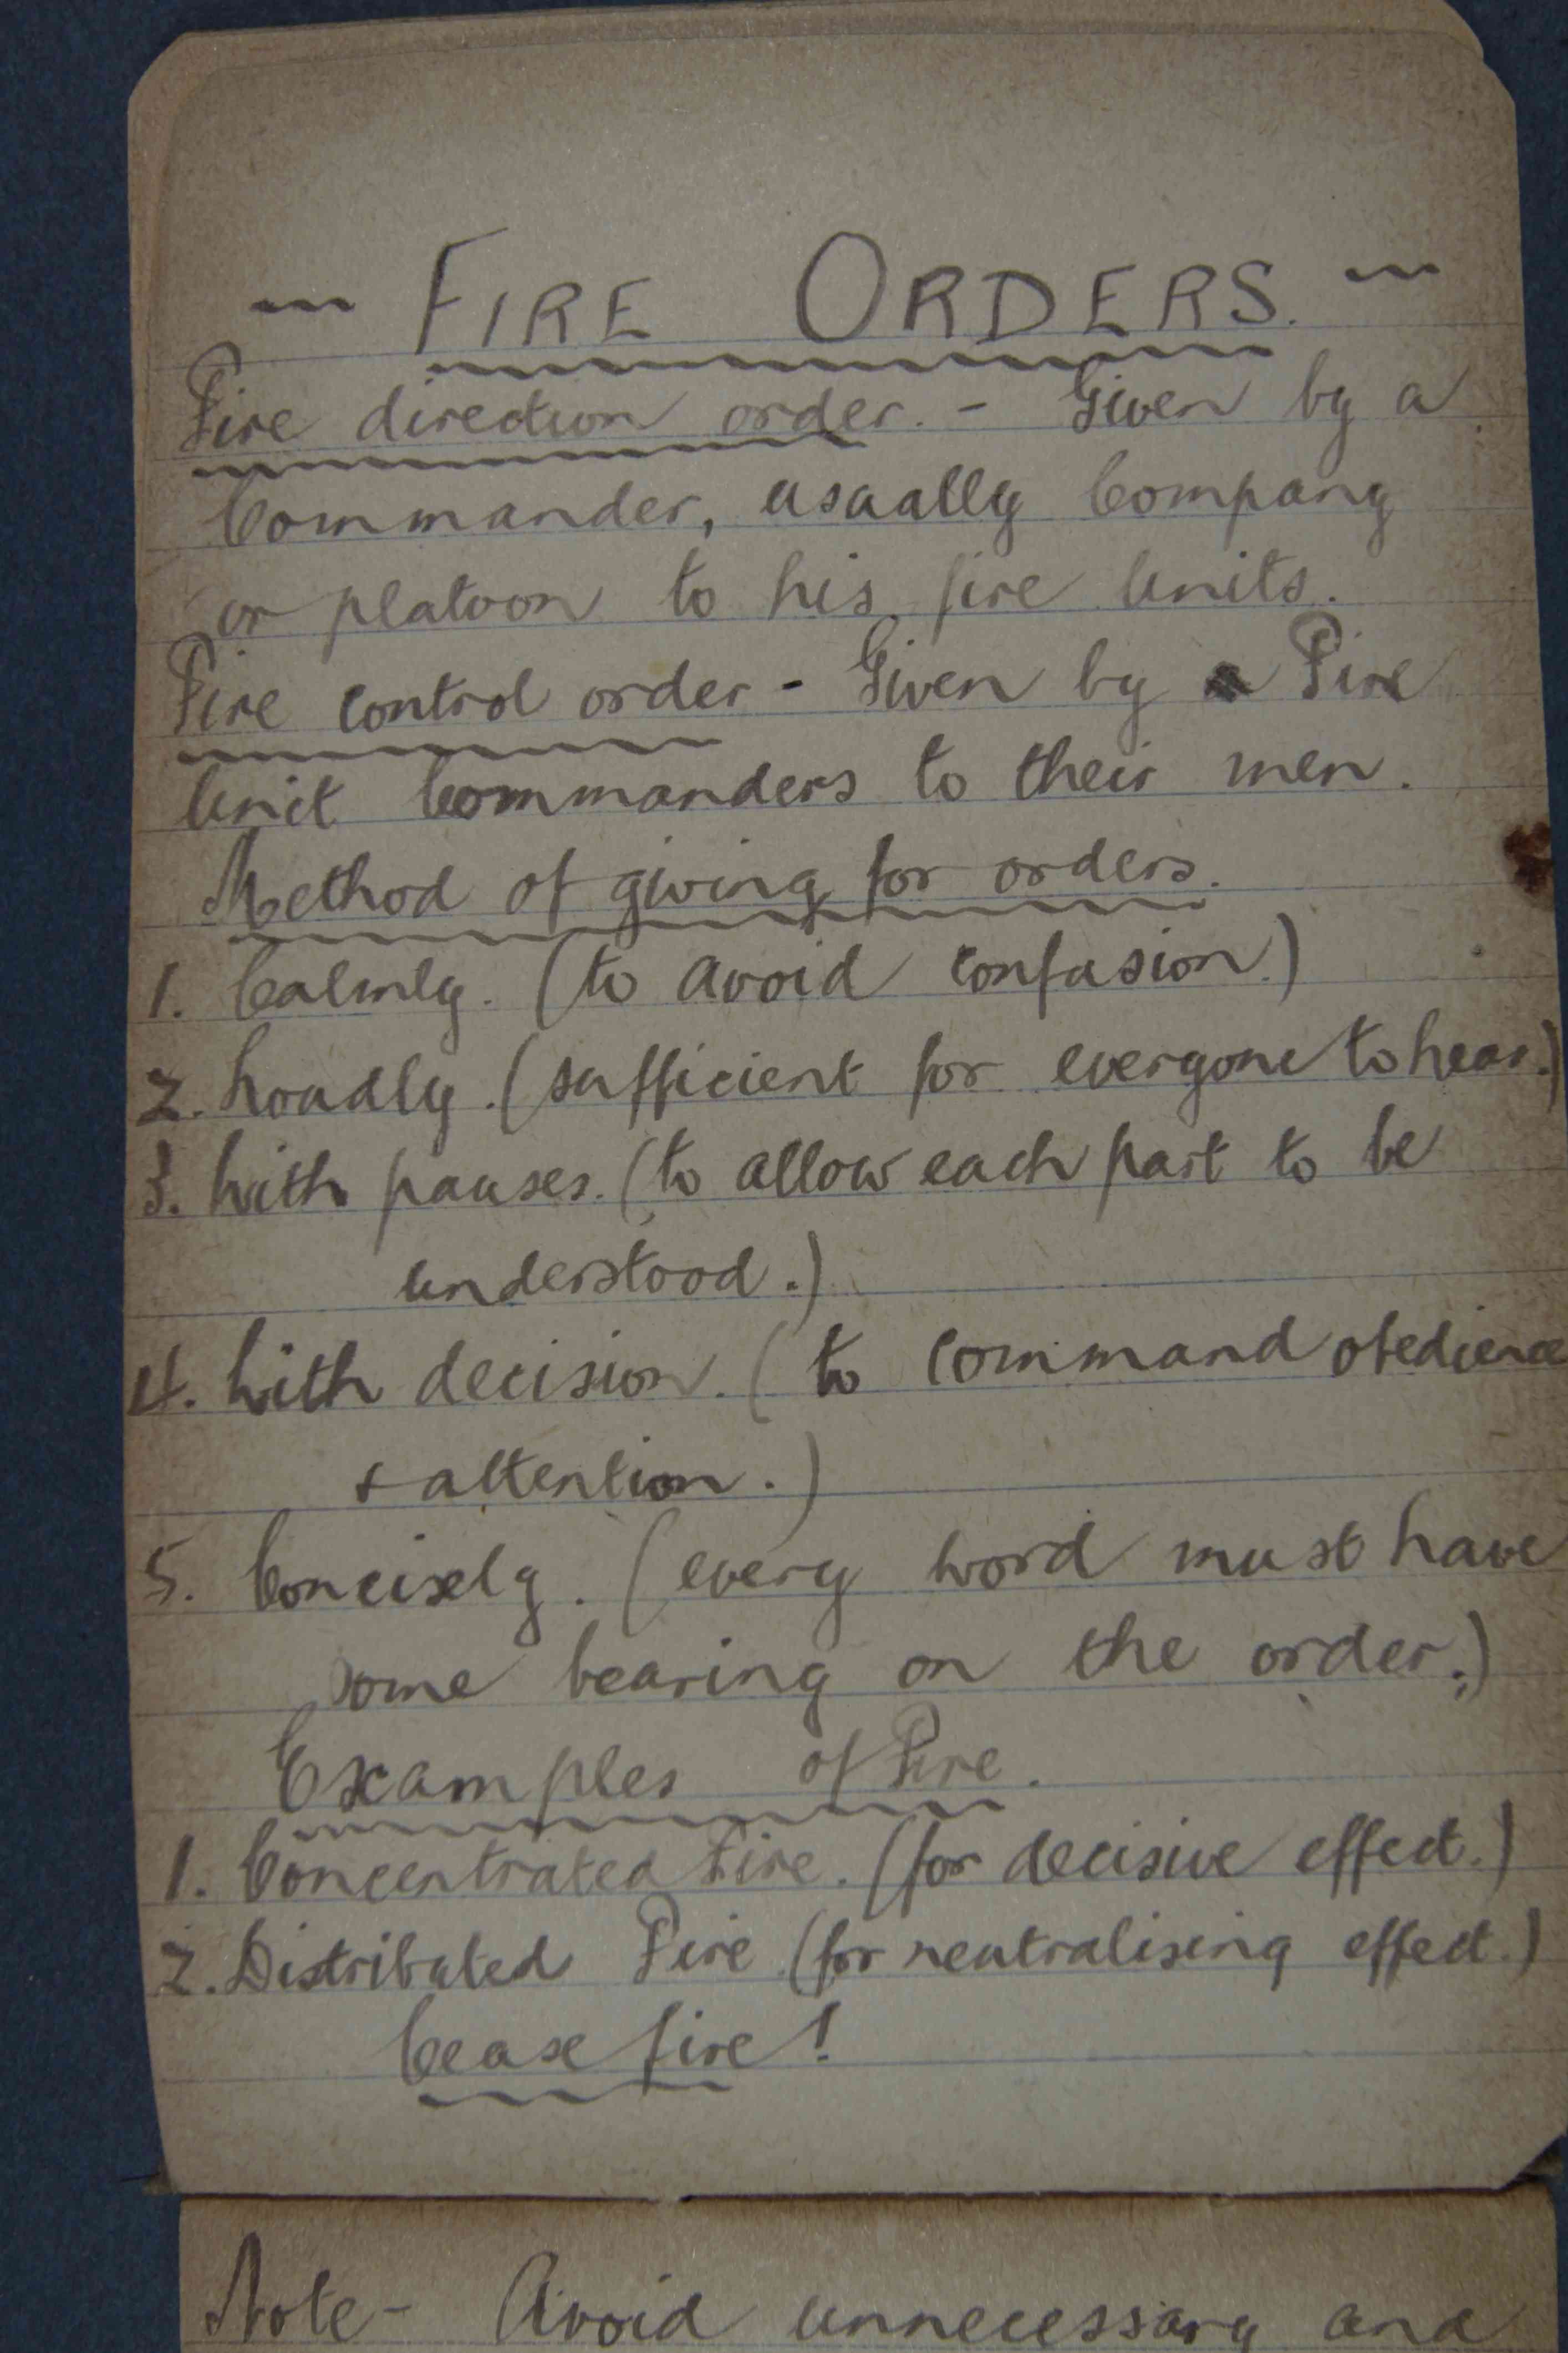 ~ FIRE ORDERS. ~
Fire direction order. - Given by a
Commander, usually Company
or platoon to his fire units.
Fire control order - Given by Fire
Unit Commanders to their men.
Method of giving for orders.
1. Calmly. (to avoid confusion.)
2. Loudly. (sufficient for everyone to hear.)
3. With pauses. (to allow each part to be
understood.)
4. With decision. (to command obedience
+ attention.)
5. Concisely. (every word must have
some bearing on the order.)
Examples of Fire.
1. Concentrated Fire. (for decisive effect.)
2. Distributed Fire (for neutralising effect.)
Cease fire!
Note - Avoid unnecessary and